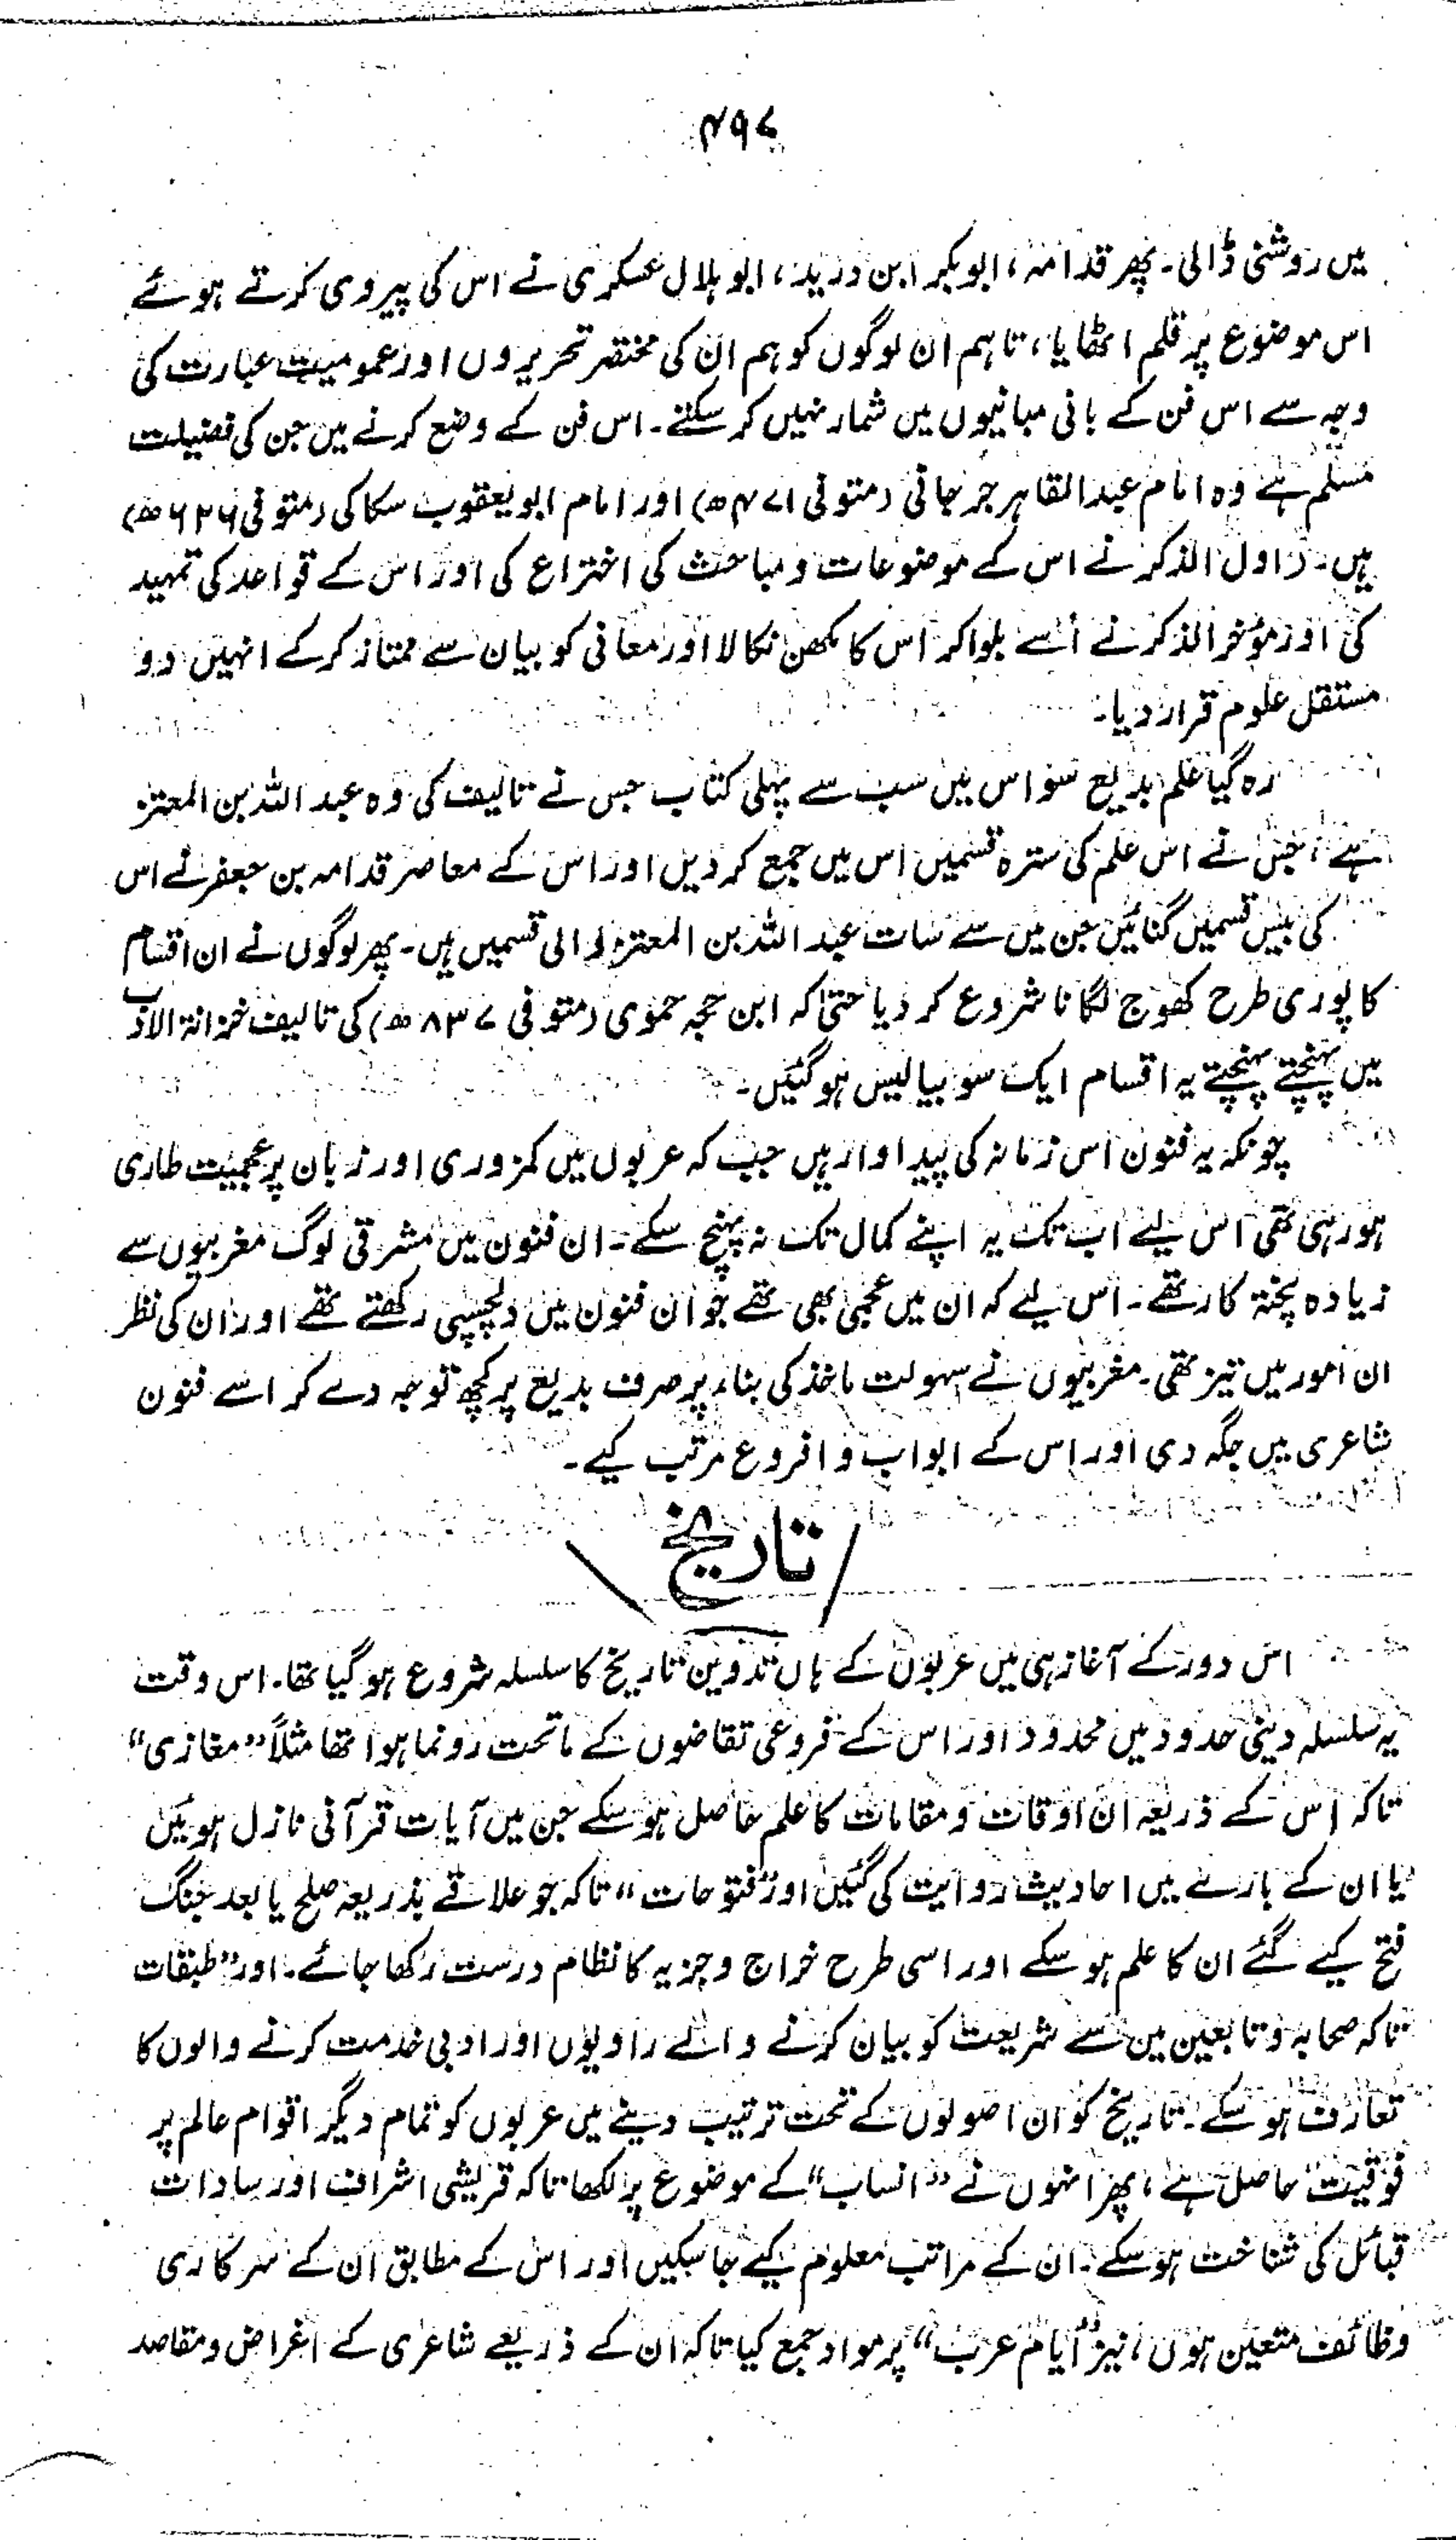 ۴۹۷
میں روشنی ڈالی۔ پھر قدامہ، ابوبکر ابن درید، ابو ہلال عسکری نے اس کی پیروی کرتے ہوئے
اس موضوع پر قلم اٹھایا، تاہم ان لوگوں کو ہم ان کی مختصر تحریروں اور عمومیت عبارت کی
وجہ سے اس فن کے بانی مبانیوں میں شمار نہیں کر سکتے۔ اس فن کے وضع کرنے میں جن کی فضیلت
مسلم ہے وہ امام عبدالقاہر جرجانی (متوفی ۴۷۱ھ) اور امام ابو یعقوب سکاکی (متوفی ۶۲۶ھ)
ہیں۔ اول الذکر نے اس کے موضوعات و مباحث کی اختراع کی اور اس کے قواعد کی تمہید
کی اور مؤخر الذکر نے اُسے بلوا کر اس کا مکھن نکالا اور معانی کو بیان سے ممتاز کر کے انہیں دو
مستقل علوم قرار دیا۔
رہ گیا علم بدیع سو اس میں سب سے پہلی کتاب جس نے تالیف کی وہ عبد اللہ بن المعتز
ہے، جس نے اس علم کی سترہ قسمیں اس میں جمع کر دیں اور اس کے معاصر قدامہ بن جعفر نے اس
کی بیس قسمیں گنائیں جن میں سے سات عبد اللہ بن المعتز والی قسمیں ہیں۔ پھر لوگوں نے ان اقسام
کا پوری طرح کھوج لگانا شروع کر دیا حتیٰ کہ ابن حجہ حموی (متوفی ۸۳۷ھ) کی تالیف خزانۃ الادب
میں پہنچتے پہنچتے یہ اقسام ایک سو بیالیس ہو گئیں۔
چونکہ یہ فنون اس زمانہ کی پیداوار ہیں جب کہ عربوں میں کمزوری اور زبان پر عجمیت طاری
ہو رہی تھی اس لیے اب تک یہ اپنے کمال تک نہ پہنچ سکے۔ ان فنون میں مشرقی لوگ مغربیوں سے
زیادہ پختہ کار تھے۔ اس لیے کہ ان میں عجمی بھی تھے جو ان فنون میں دلچسپی رکھتے تھے اور ان کی نظر
ان امور میں تیز تھی۔ مغربیوں نے سہولت ماخذ کی بناء پر صرف بدیع پر کچھ توجہ دے کر اسے فنون
شاعری میں جگہ دی اور اس کے ابواب و افروع مرتب کیے۔
تاریخ
اس دور کے آغاز ہی میں عربوں کے ہاں تدوین تاریخ کا سلسلہ شروع ہو گیا تھا۔ اس وقت
یہ سلسلہ دینی حدود میں محدود اور اس کے فروعی تقاضوں کے ماتحت رونما ہوا تھا مثلاً ”مغازی“
تاکہ اس کے ذریعہ ان اوقات و مقامات کا علم حاصل ہو سکے جن میں آیات قرآنی نازل ہوئیں
یا ان کے بارے میں احادیث روایت کی گئیں اور ”فتوحات“ تاکہ جو علاقے بذریعہ صلح یا بعد جنگ
فتح کیے گئے ان کا علم ہو سکے اور اسی طرح خراج و جزیہ کا نظام درست رکھا جائے۔ اور ”طبقات
تاکہ صحابہ و تابعین میں سے شریعت کو بیان کرنے والے راویوں اور ادبی خدمت کرنے والوں کا
تعارف ہو سکے۔ تاریخ کو ان اصولوں کے تحت ترتیب دینے میں عربوں کو تمام دیگر اقوام عالم پر
فوقیت حاصل ہے، پھر انہوں نے ”انساب“ کے موضوع پر لکھا تاکہ قریشی اشراف اور سادات
قبائل کی شناخت ہو سکے۔ ان کے مراتب معلوم کیے جا سکیں اور اس کے مطابق ان کے سرکاری
وظائف متعین ہوں، نیز ”ایام عرب“ پر مواد جمع کیا تاکہ ان کے ذریعے شاعری کے اغراض و مقاصد